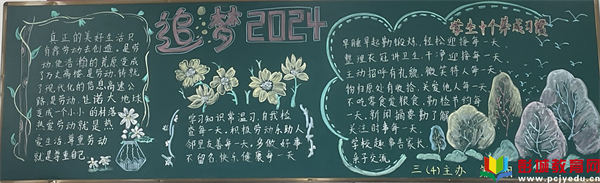 真正的美好生活只
有靠劳动去创造，是劳
动，使浩瀚的荒原变成
了万丈高楼是劳动，铸就
了现代化的信息高速公
路是劳动，让诺大地球
变成一个小小的村落
热爱劳动就是热
爱生活，尊重劳动
就是尊重自己
追梦2024
学习知识常温习，自我检
查每一天，积极劳动乐助人
邻里友善每一天，多做好事
不留名快乐健康每一天
学生十个养成习惯
早睡早起勤锻炼，轻松迎接每一天
整理衣冠讲卫生，干净迎接每一天
主动招呼有礼貌，微笑待人每一天
物归原处有收拾，关爱他人每一天
不吃零食爱粮食，勤检节约每
一天，新闻摘要勤了解
关注时事每一天，
学校趣事告家长
亲子交流
三(4)主办
彭师教育网
www.pcjyedu.cn